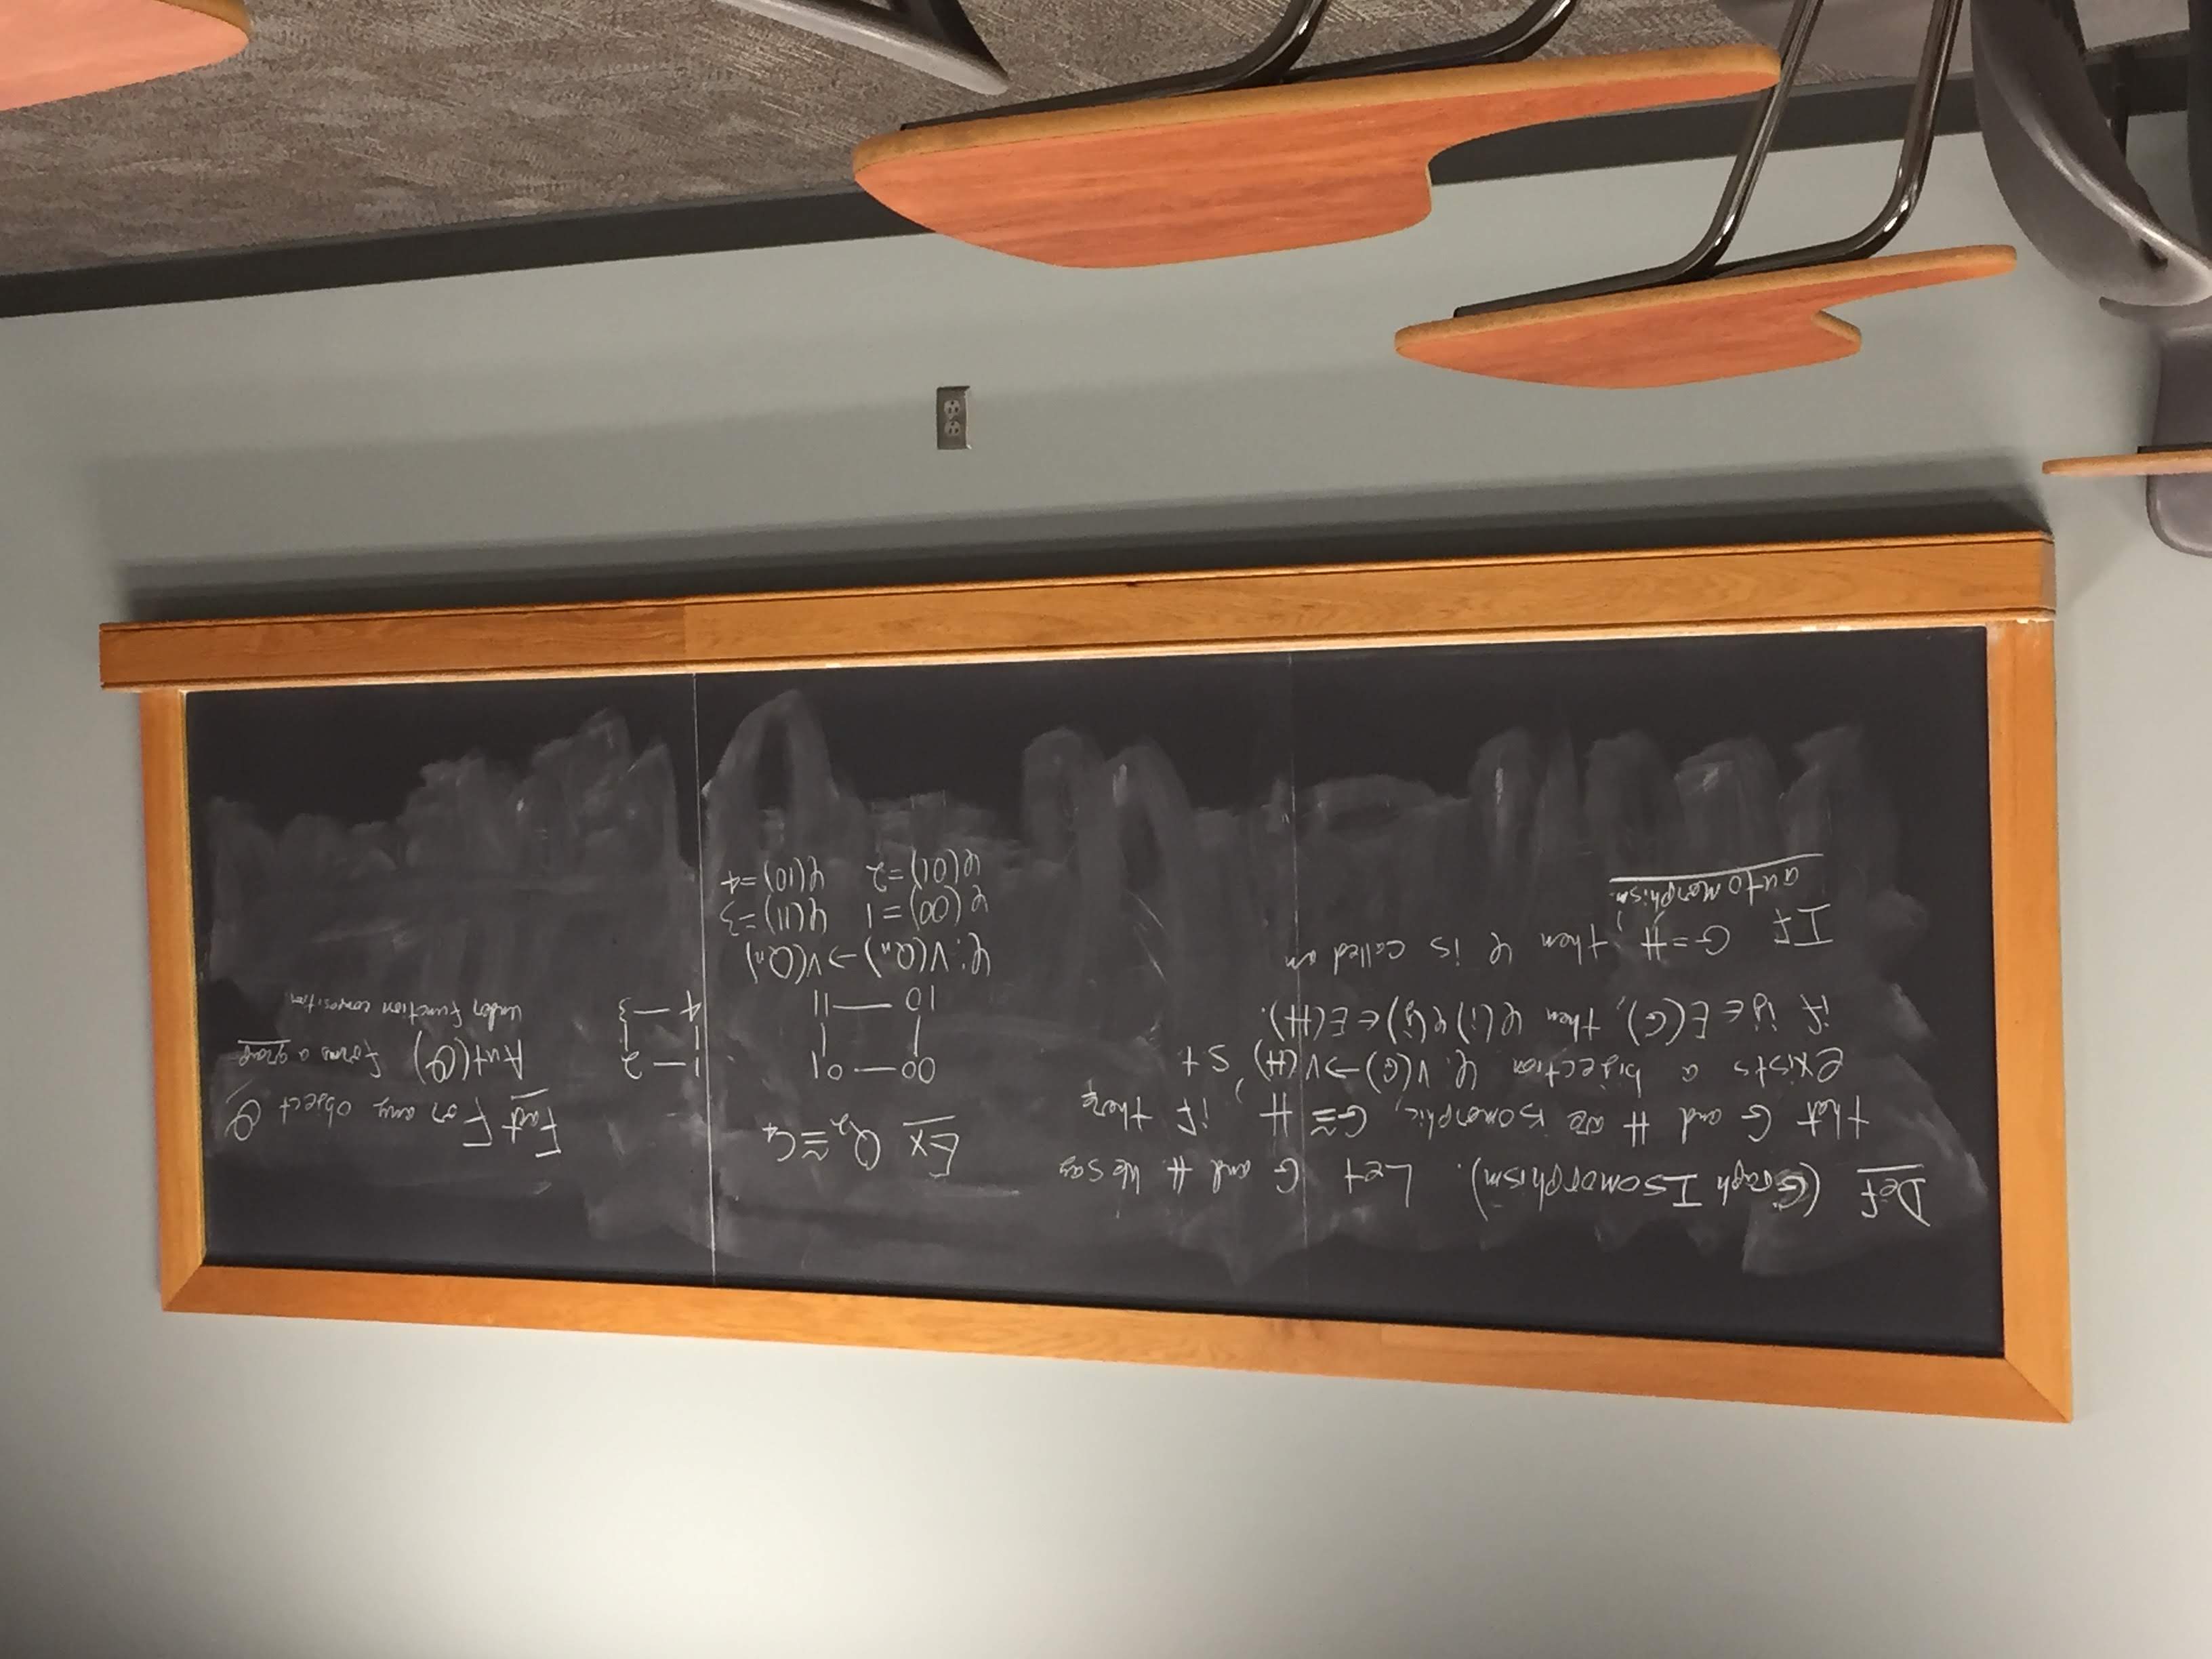 Def (Graph Isomorphism). Let G and H. We say
that G and H are isomorphic, G≅H, if there
exists a bijection φ: V(G)→V(H) s.t.
if ij∈E(G), then φ(i)φ(j)∈E(H).
If G=H, then φ is called an
automorphism.
Ex Q₂≅C₄
00—01
10—11
1—2
4—3
φ: V(Qₙ)→V(Qₙ)
φ(00)=1 φ(11)=3
φ(01)=2 φ(10)=4
Fact For any object O,
Aut(O) forms a group
under function composition.